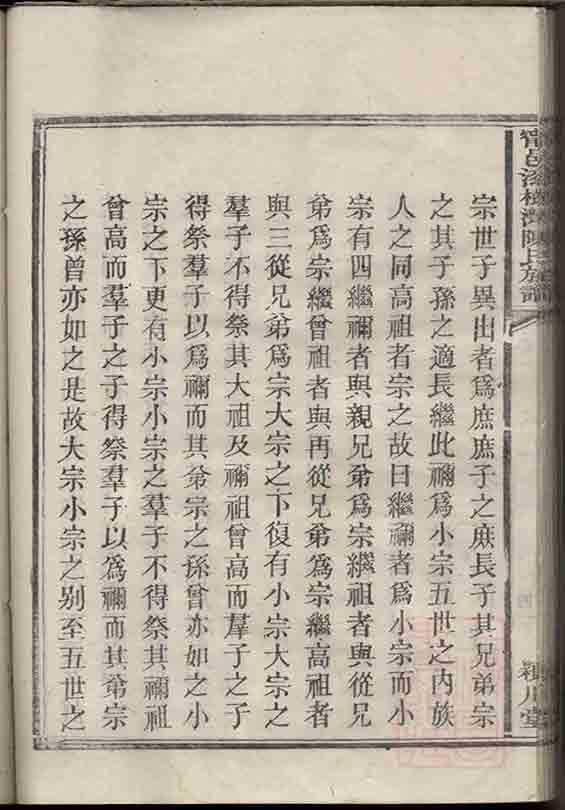 宗世子異出者爲庶庶子之庶長子其兄弟宗
之其子孫之適長繼此禰爲小宗五世之内族
人之同高祖者宗之故曰繼禰者爲小宗而小
宗有四繼禰者與親兄弟爲宗繼祖者與從兄
弟爲宗繼曾祖者與再從兄弟爲宗繼高祖者
與三從兄弟爲宗大宗之下復有小宗大宗之
羣子不得祭其大祖及禰祖曾高而羣子之子
得祭羣子以爲禰而其弟宗之孫曾亦如之小
宗之下更有小宗小宗之羣子不得祭其禰祖
曾高而羣子之子得祭羣子以爲禰而其弟宗
之孫曾亦如之是故大宗小宗之别至五世之
陳氏族譜
潁川堂